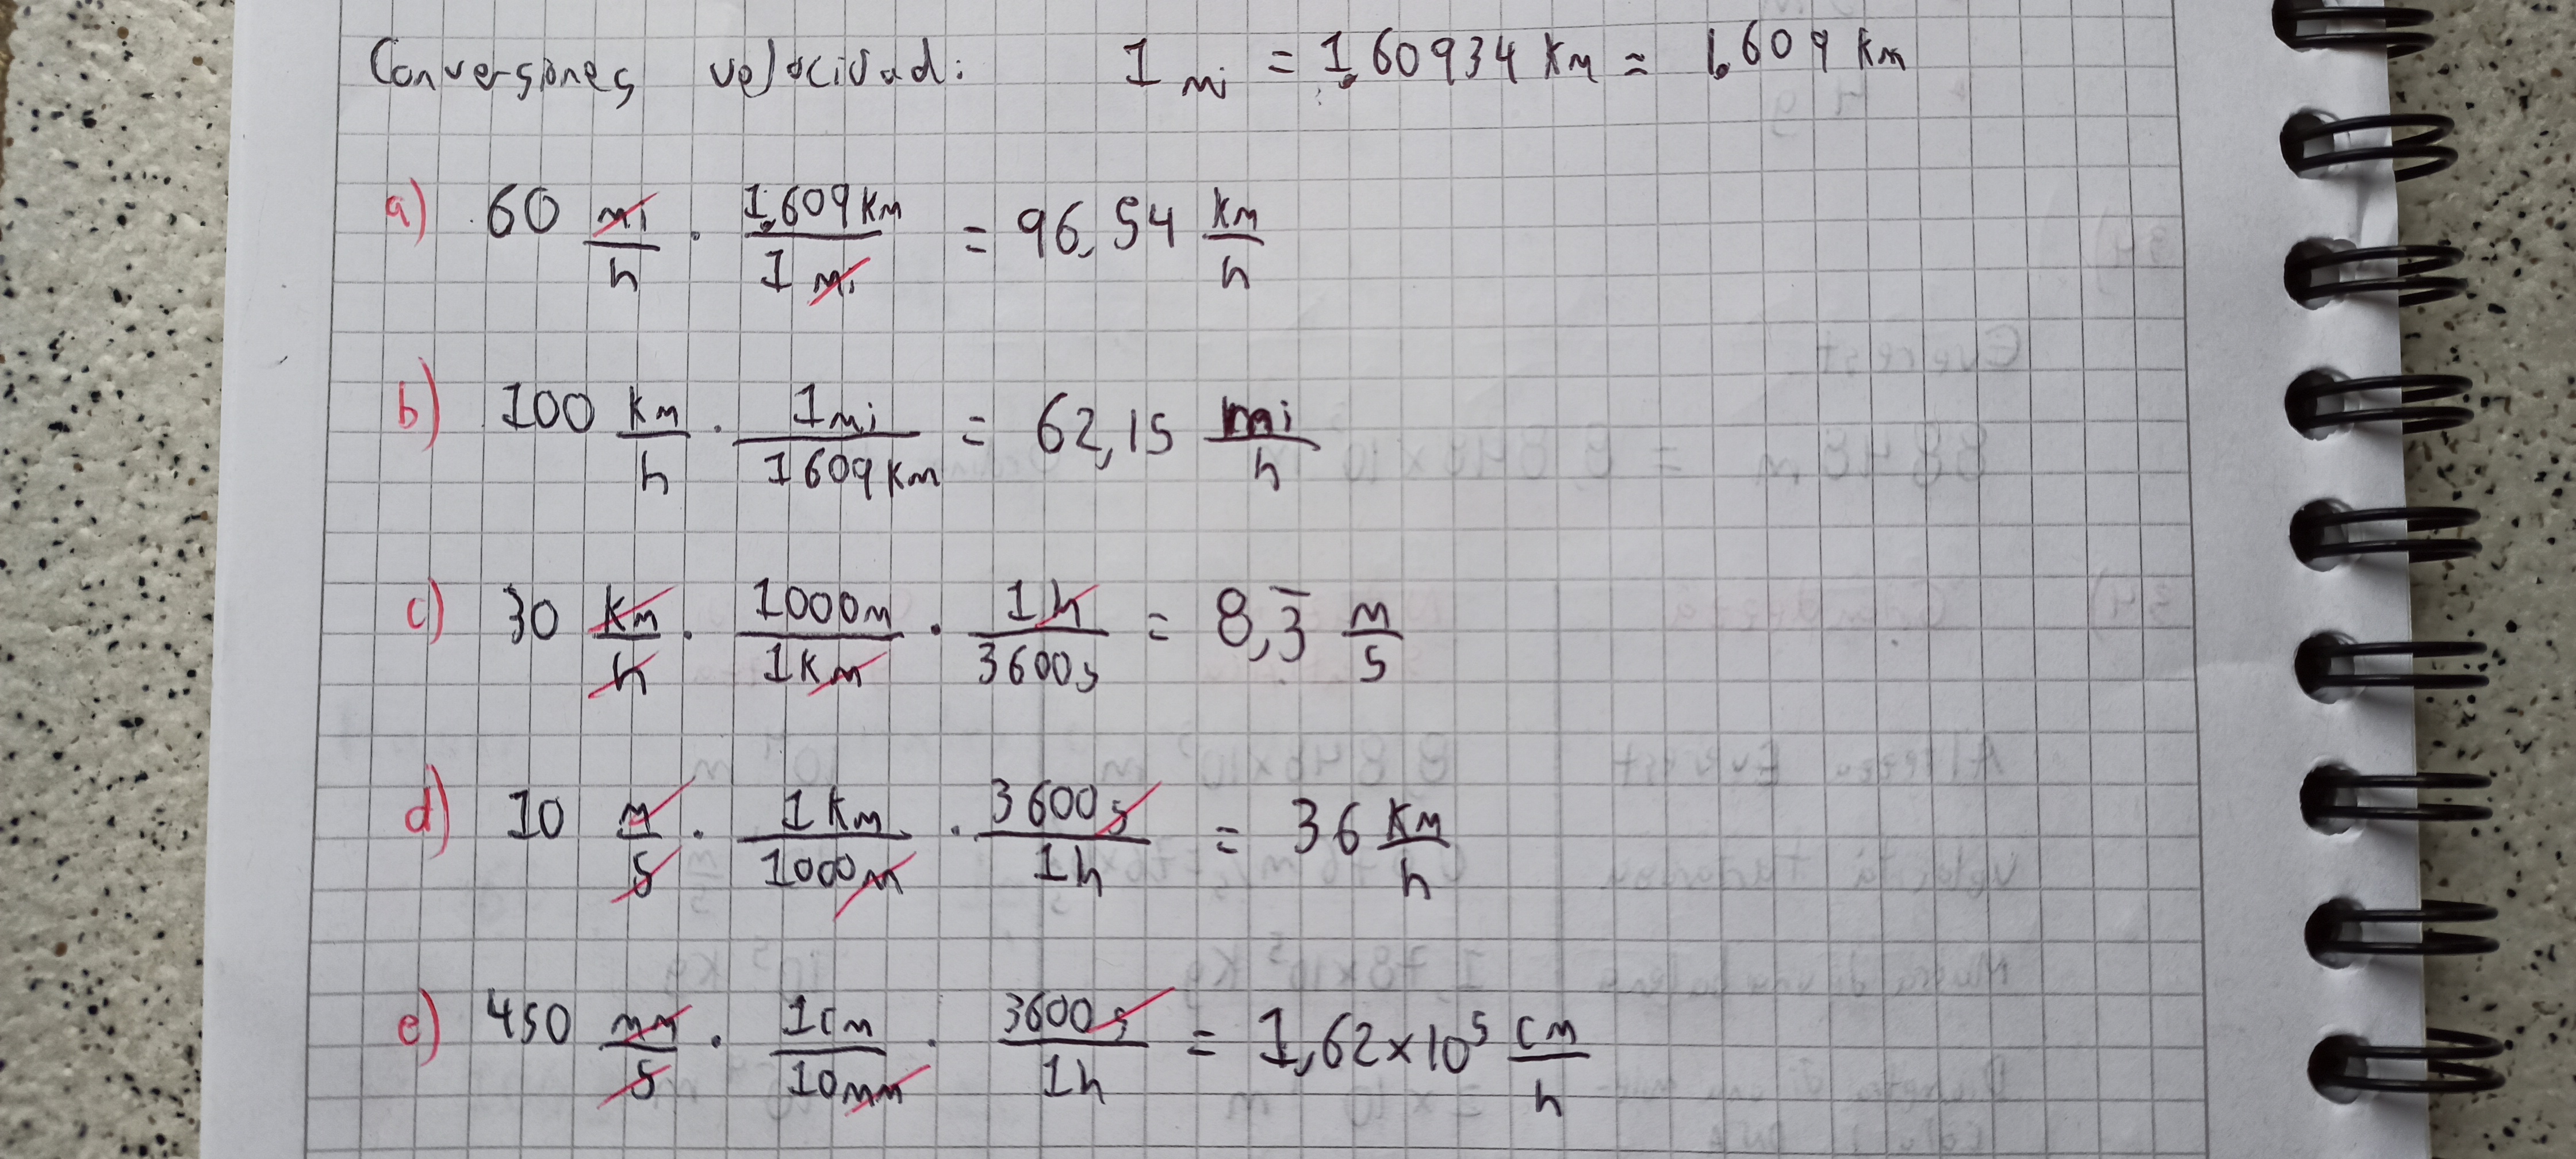 Conversiones velocidad: 1 mi = 1,60934 Km = 1,609 Km
a) 60 mi/h · 1,609 Km/1 mi = 96,54 Km/h
b) 100 Km/h · 1 mi/1609 Km = 62,15 mi/h
c) 30 Km/h · 1000 m/1 Km · 1 h/3600 s = 8,3̅ m/s
d) 10 m/s · 1 Km/1000 m · 3600 s/1 h = 36 Km/h
e) 450 mm/s · 1 cm/10 mm · 3600 s/1 h = 1,62 × 10⁵ cm/h